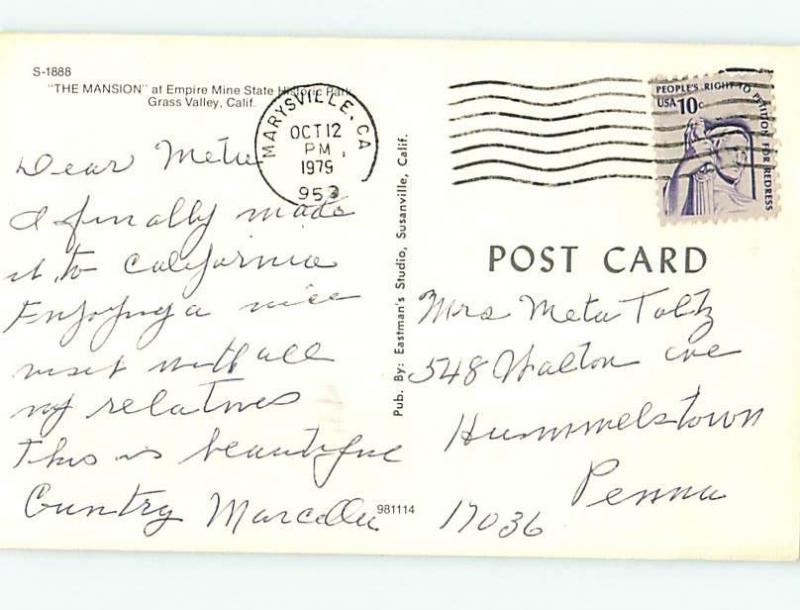 S-1888
"THE MANSION" at Empire Mine State Historic Park
Grass Valley, Calif.
MARYSVILLE, CA
OCT 12
PM
1979
953
Dear Meta
I finally made
it to California
Enjoying a nice
visit with all
my relatives
This is beautiful
Country Marcella
981114
Pub. By: Eastman's Studio, Susanville, Calif.
PEOPLE'S RIGHT TO PETITION FOR REDRESS
USA 10c
POST CARD
Mrs Meta Toltz
548 Walton ave
Hummelstown
Penna
17036